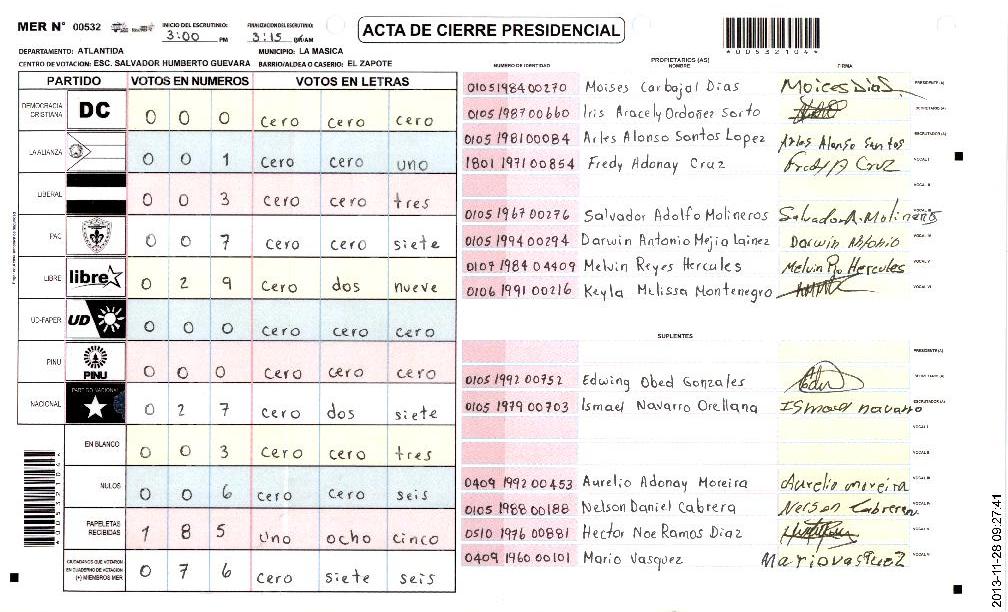 MER N° 00532
INICIO DEL ESCRUTINIO: 3:00 PM
FINALIZACION DEL ESCRUTINIO: 3:15
ACTA DE CIERRE PRESIDENCIAL
DEPARTAMENTO: ATLANTIDA MUNICIPIO: LA MASICA
CENTRO DE VOTACION: ESC. SALVADOR HUMBERTO GUEVARA BARRIO/ALDEA O CASERIO: EL ZAPOTE
PARTIDO VOTOS EN NUMEROS VOTOS EN LETRAS
DEMOCRACIA CRISTIANA DC 0 0 0 cero cero cero
LA ALIANZA 0 0 1 cero cero uno
LIBERAL 0 0 3 cero cero tres
PAC 0 0 7 cero cero siete
LIBRE libre 0 2 9 cero dos nueve
UD-FAPER UD 0 0 0 cero cero cero
PINU PINU 0 0 0 cero cero cero
NACIONAL PARTIDO NACIONAL 0 2 7 cero dos siete
EN BLANCO 0 0 3 cero cero tres
NULOS 0 0 6 cero cero seis
PAPELETAS RECIBIDAS 1 8 5 uno ocho cinco
CIUDADANOS QUE VOTARON EN CUADERNO DE VOTACION (+) MIEMBROS MER 0 7 6 cero siete seis
*00532104*
PROPIETARIOS (AS)
NUMERO DE IDENTIDAD NOMBRE FIRMA
0105 1984 00270 Moises Carbajal Dias Moices Dias PRESIDENTE (A)
0105 1987 00660 Iris Aracely Ordoñez Sorto SECRETARIO (A)
0105 1981 00084 Arles Alonso Santos Lopez Arles Alonso Santos ESCRUTADOR (A)
1801 1971 00854 Fredy Adonay Cruz Fredy A Cruz VOCAL I
VOCAL II
0105 1967 00276 Salvador Adolfo Molineros Salvador A. Molineros VOCAL III
0105 1994 00294 Darwin Antonio Mejia Lainez Darwin VOCAL IV
0107 1984 04409 Melvin Reyes Hercules Melvin Hercules VOCAL V
0106 1991 00216 Keyla Melissa Montenegro VOCAL VI
SUPLENTES
PRESIDENTE (A)
0105 1992 00752 Edwing Obed Gonzales SECRETARIO (A)
0105 1979 00703 Ismael Navarro Orellana Ismael navarro ESCRUTADOR (A)
VOCAL I
VOCAL II
0409 1992 00453 Aurelio Adonay Moreira Aurelio moreira VOCAL III
0105 1988 00188 Nelson Daniel Cabrera Nerson Cabrera VOCAL IV
0510 1976 00881 Hector Noe Ramos Diaz VOCAL V
0409 1960 00101 Mario Vasquez Mario vasquez VOCAL VI
2013-11-28 09:27:41